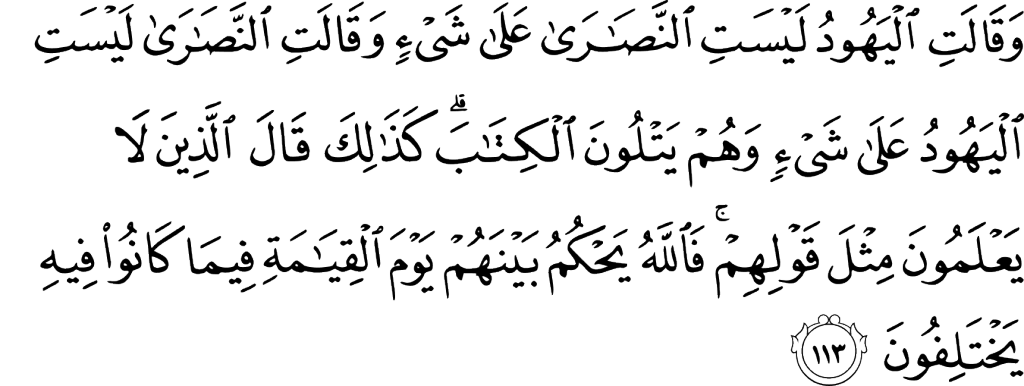 وَقَالَتِ ٱلْيَهُودُ لَيْسَتِ ٱلنَّصَـٰرَىٰ عَلَىٰ شَىْءٍ وَقَالَتِ ٱلنَّصَـٰرَىٰ لَيْسَتِ
ٱلْيَهُودُ عَلَىٰ شَىْءٍ وَهُمْ يَتْلُونَ ٱلْكِتَـٰبَ ۗ كَذَٰلِكَ قَالَ ٱلَّذِينَ لَا
يَعْلَمُونَ مِثْلَ قَوْلِهِمْ ۚ فَٱللَّهُ يَحْكُمُ بَيْنَهُمْ يَوْمَ ٱلْقِيَـٰمَةِ فِيمَا كَانُوا۟ فِيهِ
يَخْتَلِفُونَ ١١٣